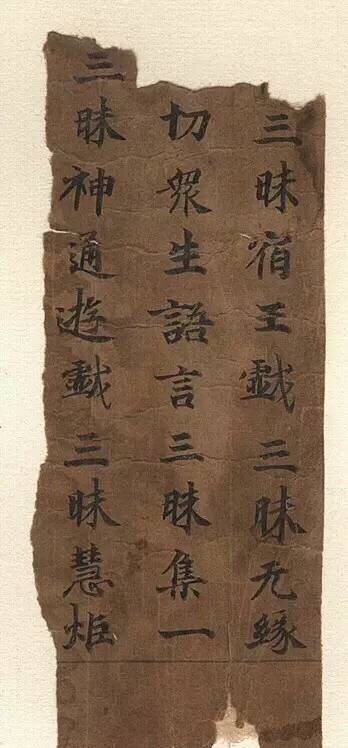 三昧宿王戲三昧无緣
切衆生語言三昧集一
三昧神通遊戲三昧慧炬